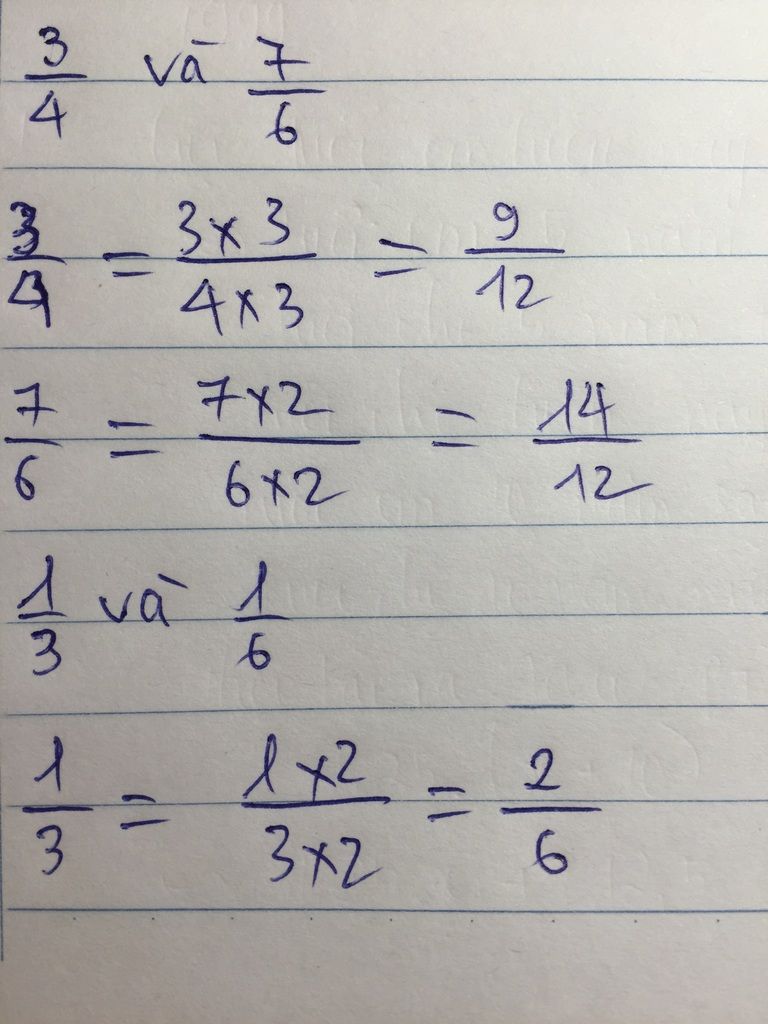 3/4 và 7/6
3/4 = 3x3/4x3 = 9/12
7/6 = 7x2/6x2 = 14/12
1/3 và 1/6
1/3 = 1x2/3x2 = 2/6